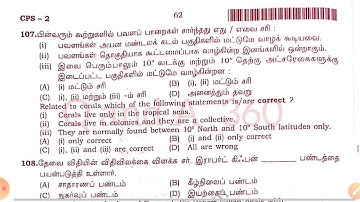 CPS – 2
62
107.பின்வரும் கூற்றுகளில் பவளப் பாறைகள் சார்ந்தது எது / எவை சரி :
(i) பவளங்கள் அயன மண்டலக் கடல் பகுதிகளில் மட்டுமே வாழக் கூடியவை.
(ii) பவளங்கள் தொகுதியாக கூட்டமைப்பாக வாழ்கின்ற இனங்களில் ஒன்றாகும்.
(iii) இவை பெரும்பாலும் 10° வடக்கு மற்றும் 10° தெற்கு அட்சரேகைகளுக்கு
இடைப்பட்ட பகுதிகளில் மட்டுமே வாழ்கின்றன :
(A) (i) மட்டும் சரி (B) (i) மற்றும் (ii) மட்டும் சரி
(C) (i), (ii) மற்றும் (iii) -ம் சரி (D) அனைத்தும் தவறு
Related to corals which of the following statements is/are correct ?
(i) Corals live only in the tropical seas.
(ii) Corals live in colonies and they are a collective.
(iii) They are normally found between 10° North and 10° South latitudes only.
(A) (i) only correct (B) (i) and (ii) only correct
(C) (i), (ii) and (iii) are correct (D) All are wrong
108.தேவை விதியின் விதிவிலக்கை விளக்க சர். இராபர்ட் கிஃபன் பண்டத்தை
பயன்படுத்தி உள்ளார்.
(A) சாதாரணப் பண்டம் (B) கீழ்நிலைப் பண்டம்
(C) நுகர்வுப் பண்டம் (D)
360